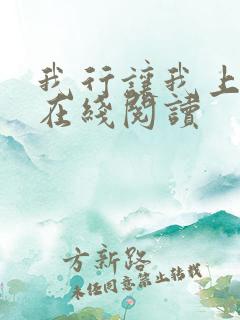 我行讓我上
在綫閱讀
方新路
未経同意禁止转載